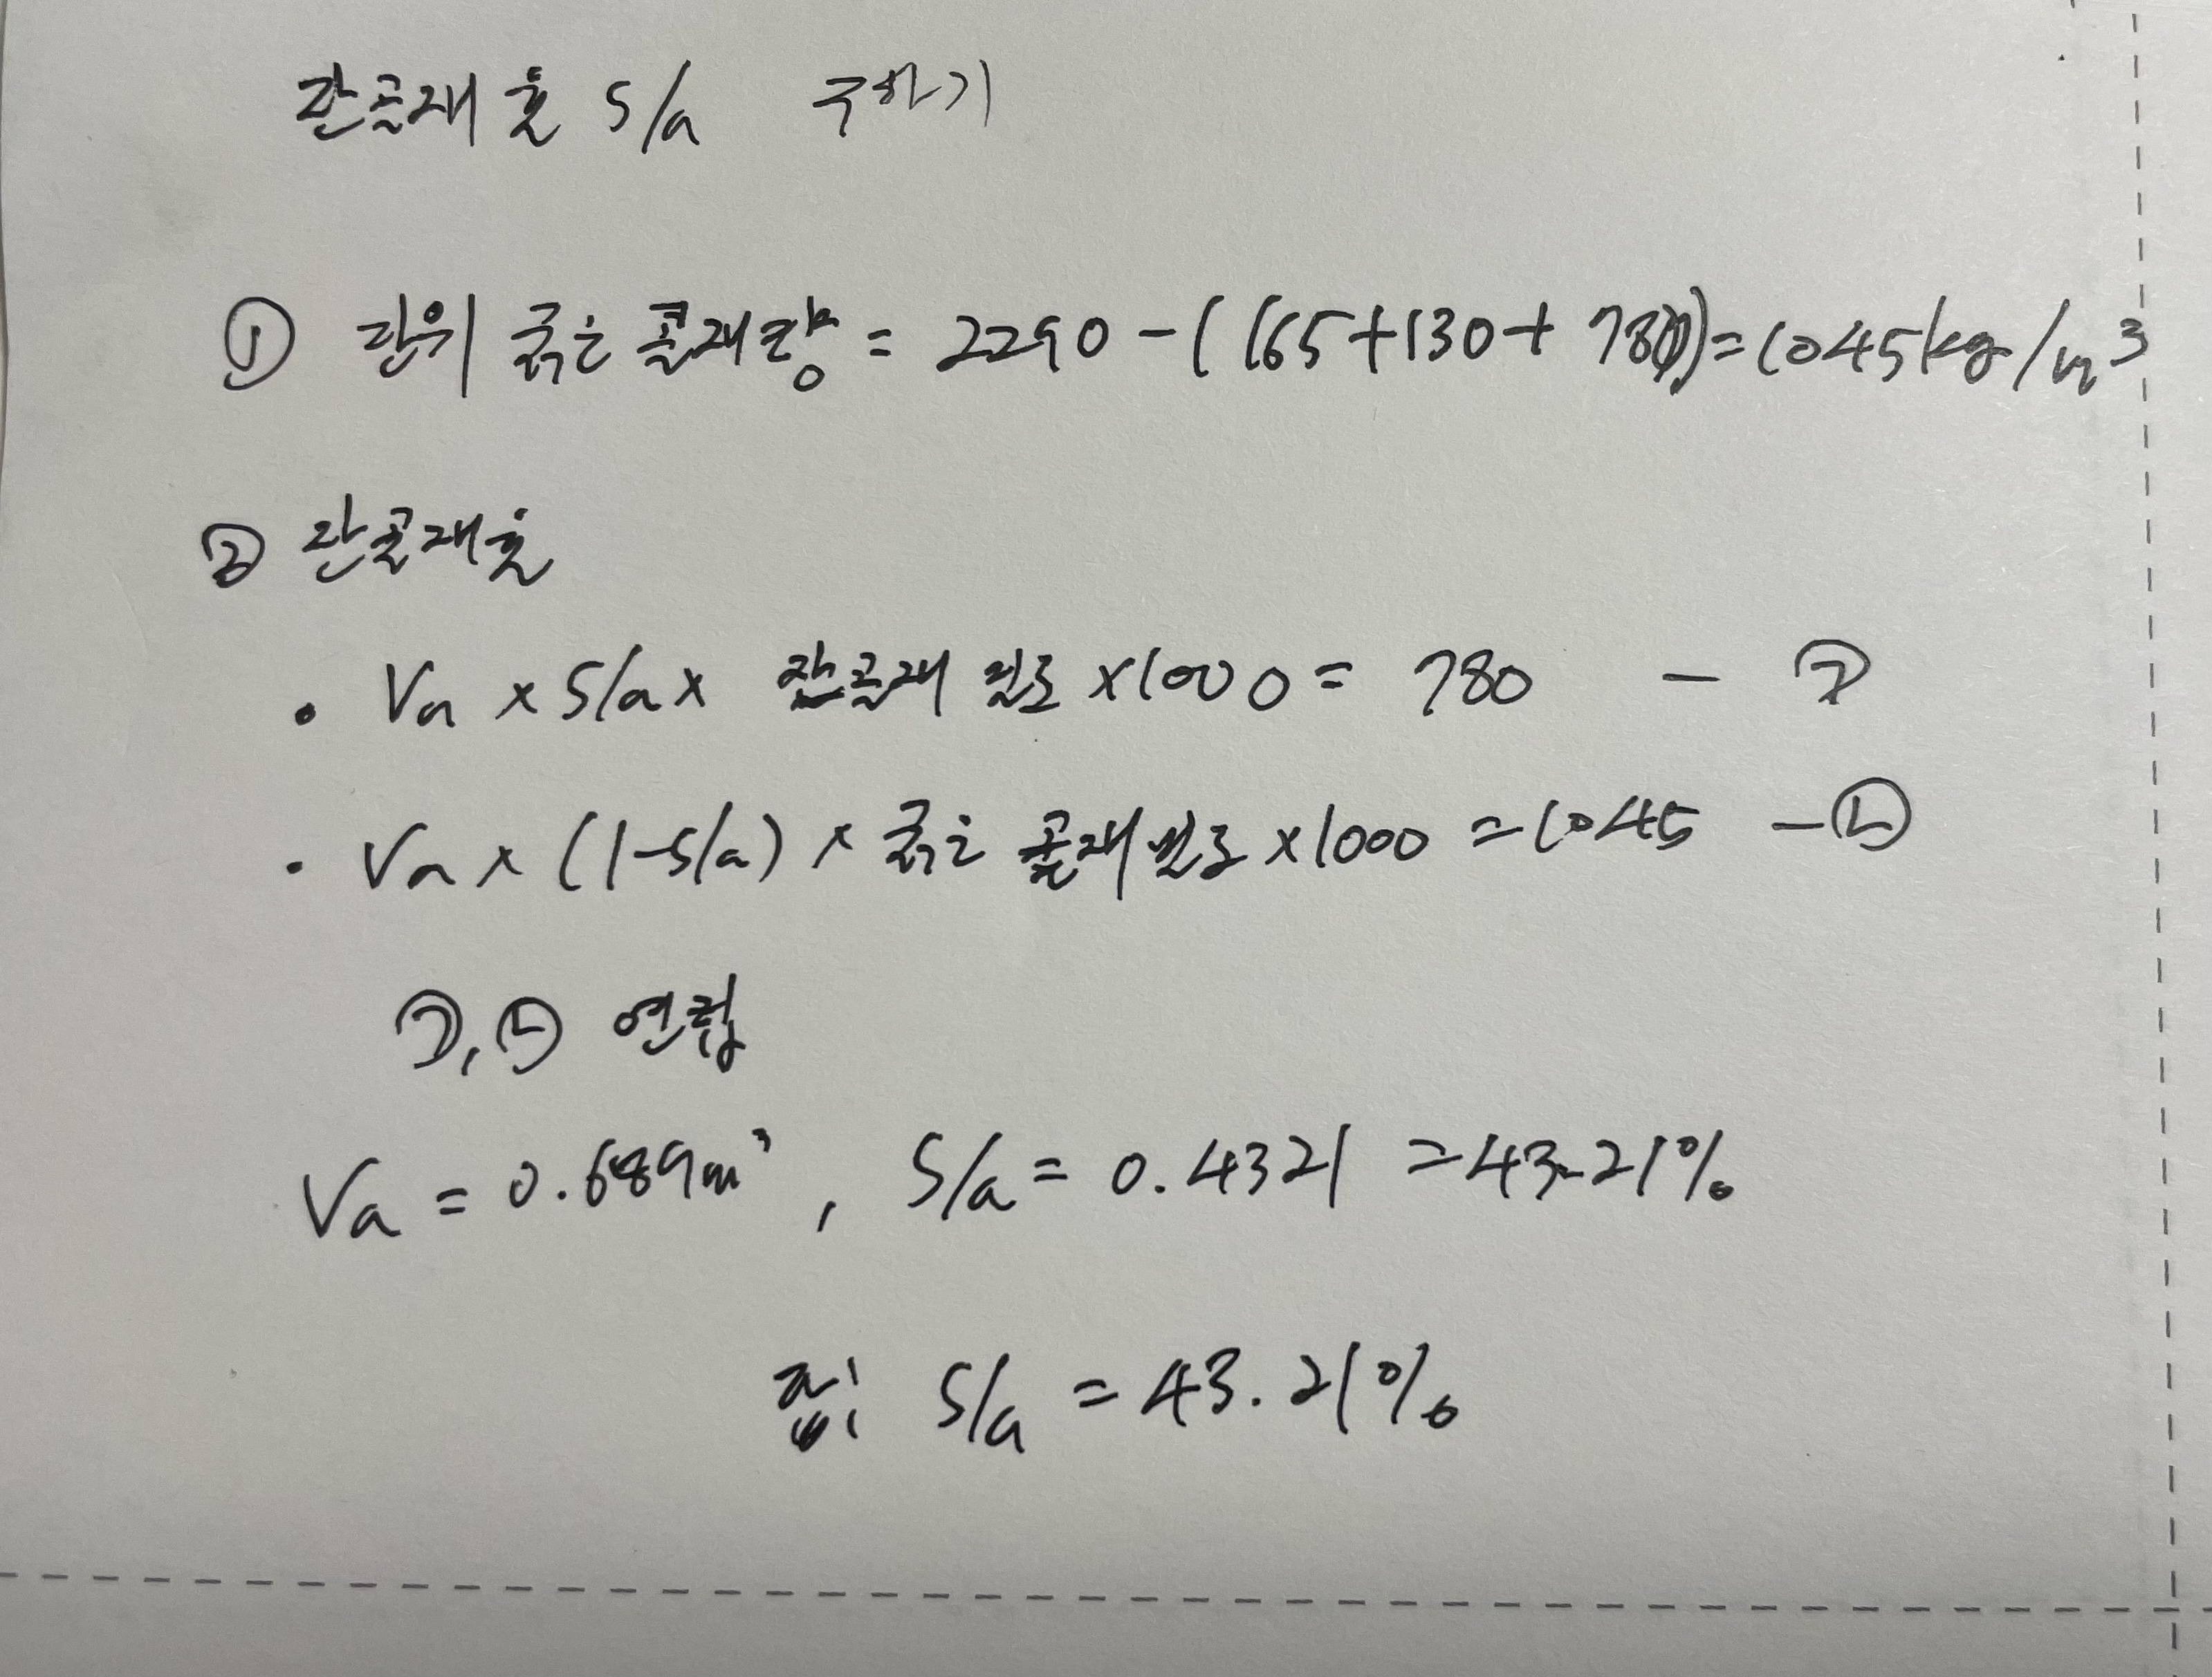 잔골재율 S/a 구하기
① 단위 굵은 골재량 = 2290 - (165+130+780)=1045kg/m³
② 잔골재율
• Va × S/a × 잔골재 밀도 ×1000 = 780 - ㉠
• Va × (1-S/a) × 굵은 골재 밀도 ×1000 = 1045 - ㉡
㉠, ㉡ 연립
Va = 0.689m³, S/a = 0.4321 = 43.21%
답: S/a = 43.21%